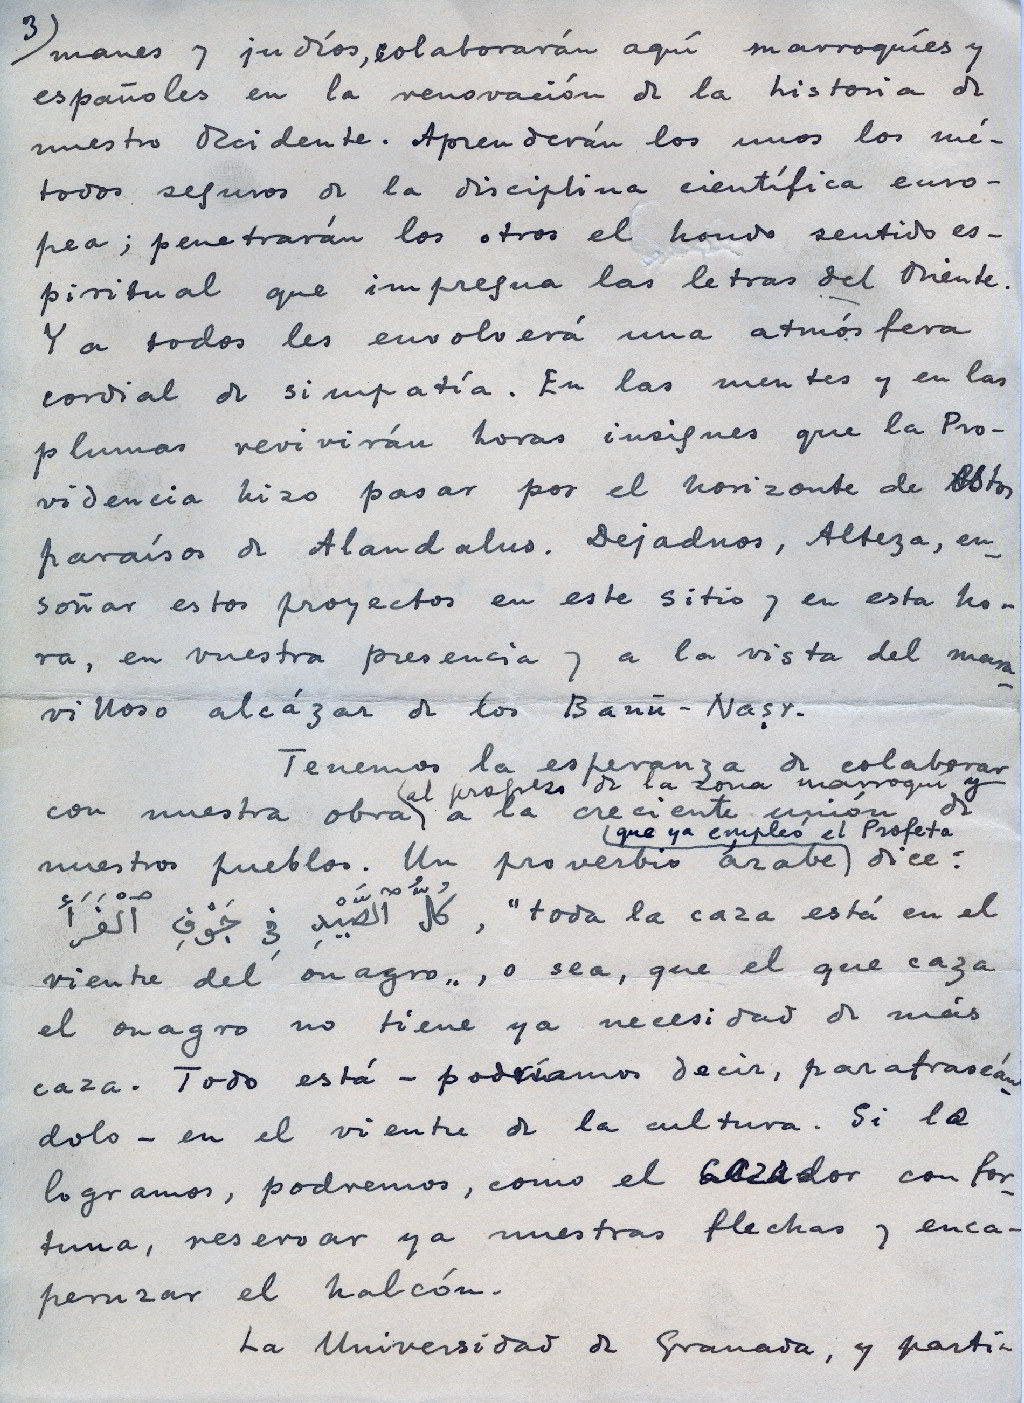 3)
manes y judíos, colaborarán aquí marroquíes y
españoles en la renovación de la historia de
nuestro Occidente. Aprenderán los unos los mé-
todos seguros de la disciplina científica euro-
pea; penetrarán los otros el hondo sentido es-
piritual que impregna las letras del Oriente.
Y a todos les envolverá una atmósfera
cordial de simpatía. En las mentes y en las
plumas revivirán horas insignes que la Pro-
videncia hizo pasar por el horizonte de estos
paraísos de Alandalus. Dejadnos, Alteza, en-
soñar estos proyectos en este sitio y en esta ho-
ra, en vuestra presencia y a la vista del mara-
villoso alcázar de los Banū-Naṣr.
Tenemos la esperanza de colaborar
(al progreso de la zona marroquí y
con nuestra obra) a la creciente unión de
(que ya empleó el Profeta
nuestros pueblos. Un proverbio árabe) dice:
كُلُّ ٱلصَّيْدِ فِي جَوْفِ ٱلْفَرَأَ, "toda la caza está en el
vientre del onagro„, o sea, que el que caza
el onagro no tiene ya necesidad de más
caza. Todo está - podríamos decir, parafraseán-
dolo - en el vientre de la cultura. Si la
logramos, podremos, como el cazador con for-
tuna, reservar ya nuestras flechas y enca-
peruzar el halcón.
La Universidad de Granada, y parti-